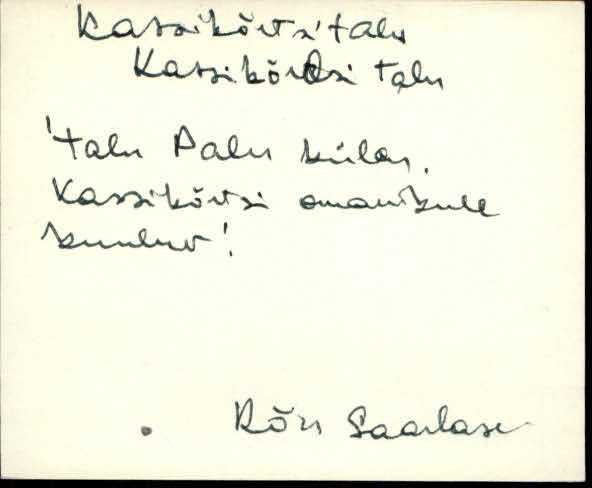 Kassikõrtsi talu
Kassikõrtsi talu
'talu Palu külas,
Kassikõrtsi omanikule
kuuluv'.
Rõu Saarlase